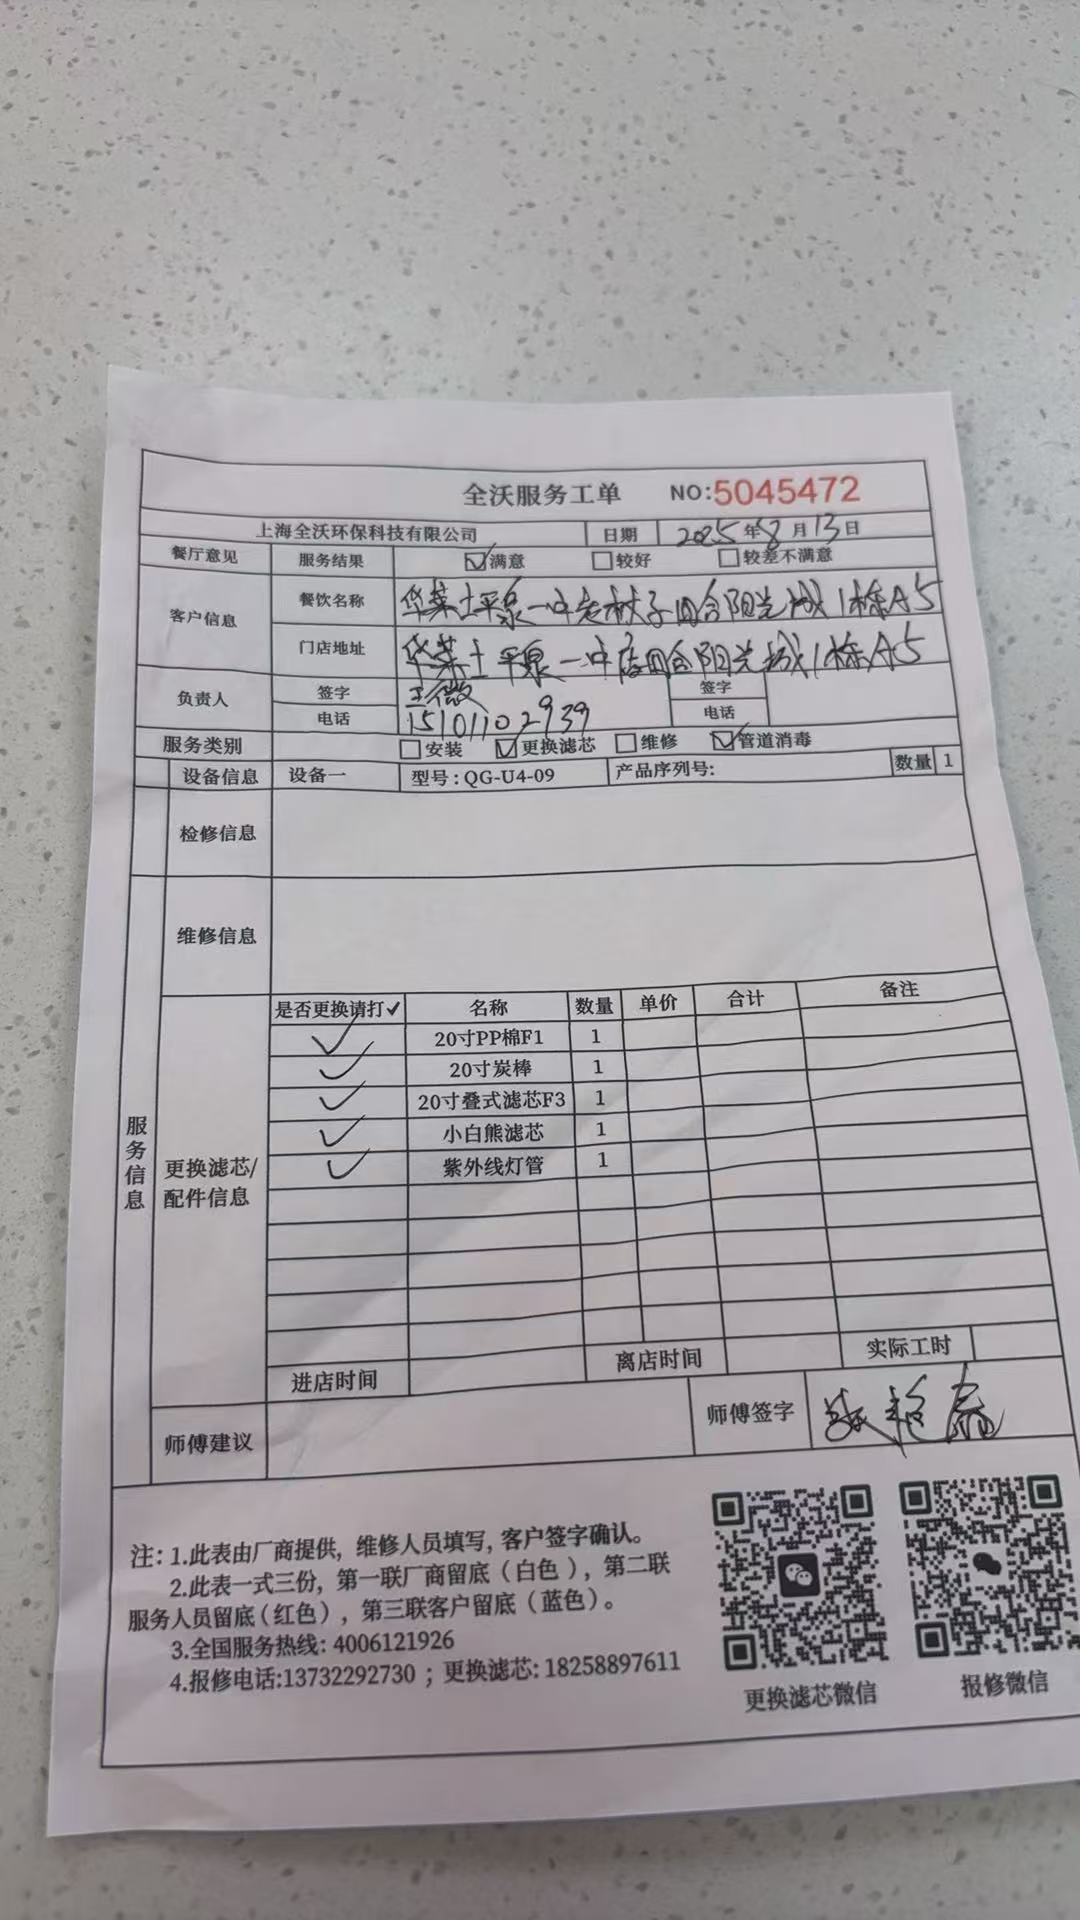 全沃服务工单 NO:5045472
上海全沃环保科技有限公司 日期 2025年8月13日
餐厅意见 服务结果 ☑满意 ☐较好 ☐较差不满意
客户信息 餐饮名称 华莱士平泉一中店 四合阳光城1栋A5
门店地址 华莱士平泉一中店四合阳光城1栋A5
负责人 签字 王微 签字
电话 15101102939 电话
服务类别 ☐安装 ☑更换滤芯 ☐维修 ☑管道消毒
设备信息 设备一 型号:QG-U4-09 产品序列号: 数量 1
检修信息
维修信息
服务信息
更换滤芯/配件信息
是否更换请打✓ 名称 数量 单价 合计 备注
✓ 20寸PP棉F1 1
✓ 20寸炭棒 1
✓ 20寸叠式滤芯F3 1
✓ 小白熊滤芯 1
✓ 紫外线灯管 1
进店时间 离店时间 实际工时
师傅建议 师傅签字
注:1.此表由厂商提供,维修人员填写,客户签字确认。
2.此表一式三份,第一联厂商留底(白色),第二联
服务人员留底(红色),第三联客户留底(蓝色)。
3.全国服务热线:4006121926
4.报修电话:13732292730 ;更换滤芯:18258897611
更换滤芯微信 报修微信